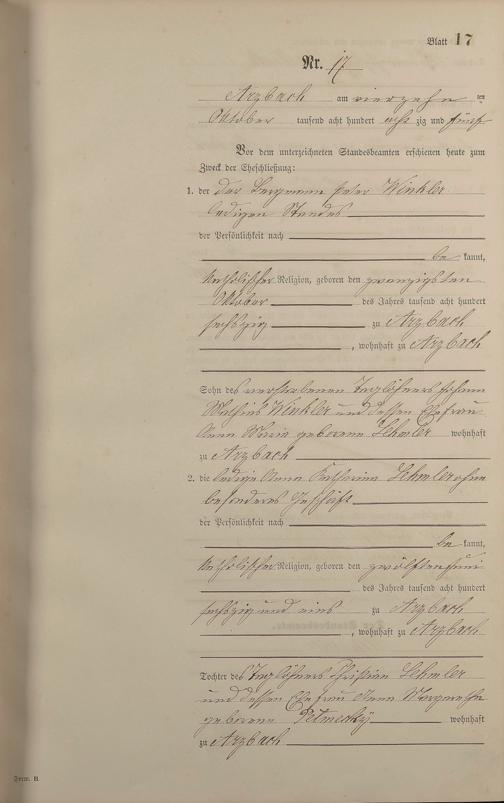 Blatt 17
Nr. 17
Arzbach am vierzehn ten
Oktober tausend acht hundert acht zig und fünf
Vor dem unterzeichneten Standesbeamten erschienen heute zum
Zweck der Eheschließung:
1. der der Bergmann Peter Winkler
ledigen Standes
der Persönlichkeit nach
be kannt,
katholischer Religion, geboren den zwanzigsten
Oktober des Jahres tausend acht hundert
sechszig zu Arzbach
, wohnhaft zu Arzbach
Sohn des verstorbenen Taglöhners Johann
Mathias Winkler und dessen Ehefrau
Anna Maria geborene Lehmler wohnhaft
zu Arzbach
2. die ledige Anna Katharina Lehmler ohne
besonderes Geschäft
der Persönlichkeit nach
be kannt,
katholischer Religion, geboren den zwölften Juni
des Jahres tausend acht hundert
sechszig und eins zu Arzbach
, wohnhaft zu Arzbach
Tochter des Taglöhners Christian Lehmler
und dessen Ehefrau Anna Margaretha
geborene wohnhaft
zu Arzbach
Form. B.